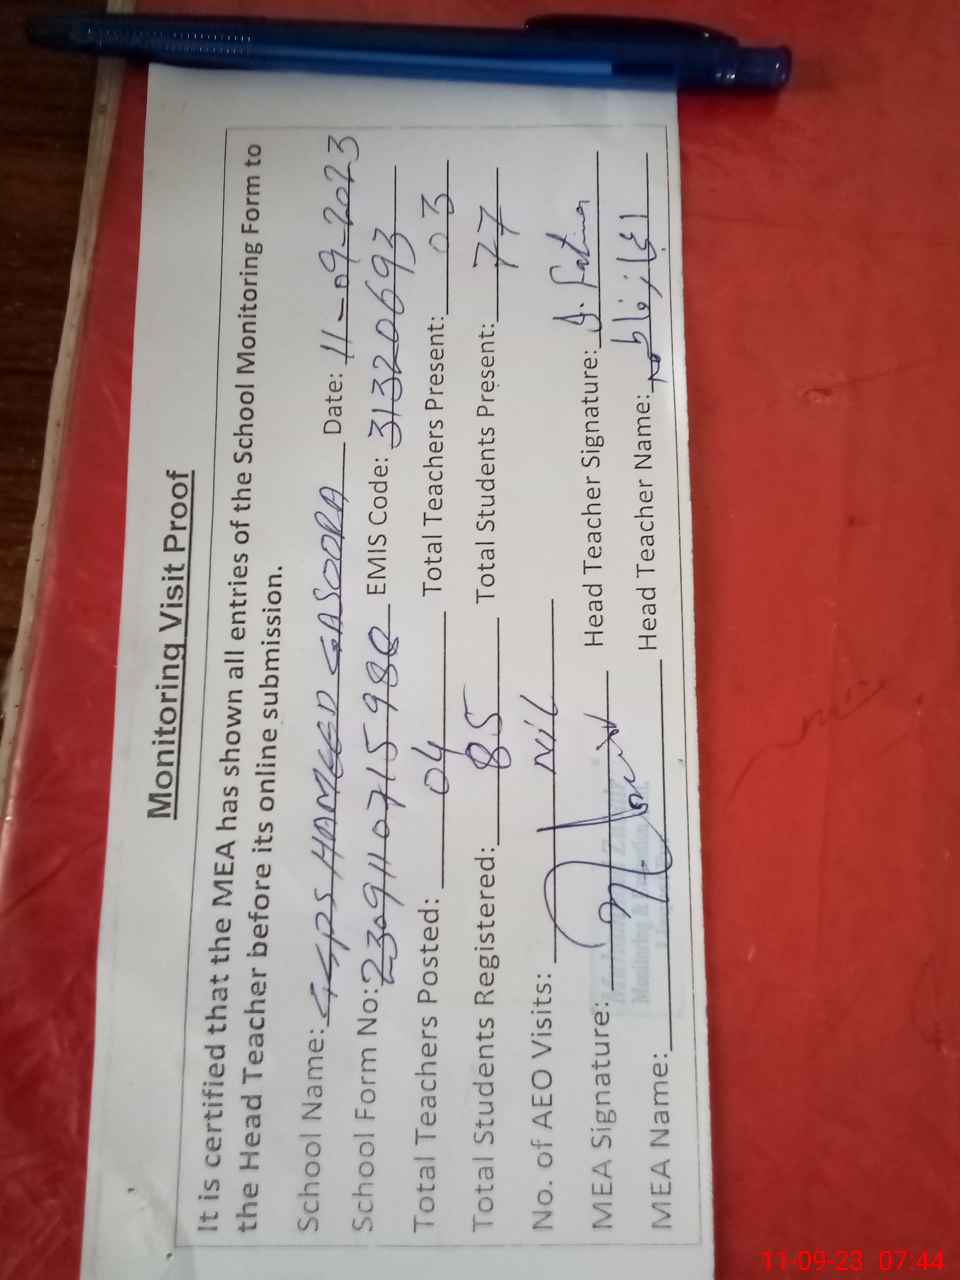 Monitoring Visit Proof
It is certified that the MEA has shown all entries of the School Monitoring Form to
the Head Teacher before its online submission.
School Name: GGPS HAMEED GASOORA Date: 11-09-2023
School Form No: 2309110715980 EMIS Code: 31320693
Total Teachers Posted: 04 Total Teachers Present: 03
Total Students Registered: 85 Total Students Present: 77
No. of AEO Visits: Nil
MEA Signature: Head Teacher Signature: A. Fatima
MEA Name: Head Teacher Name:
11-09-23 07:44